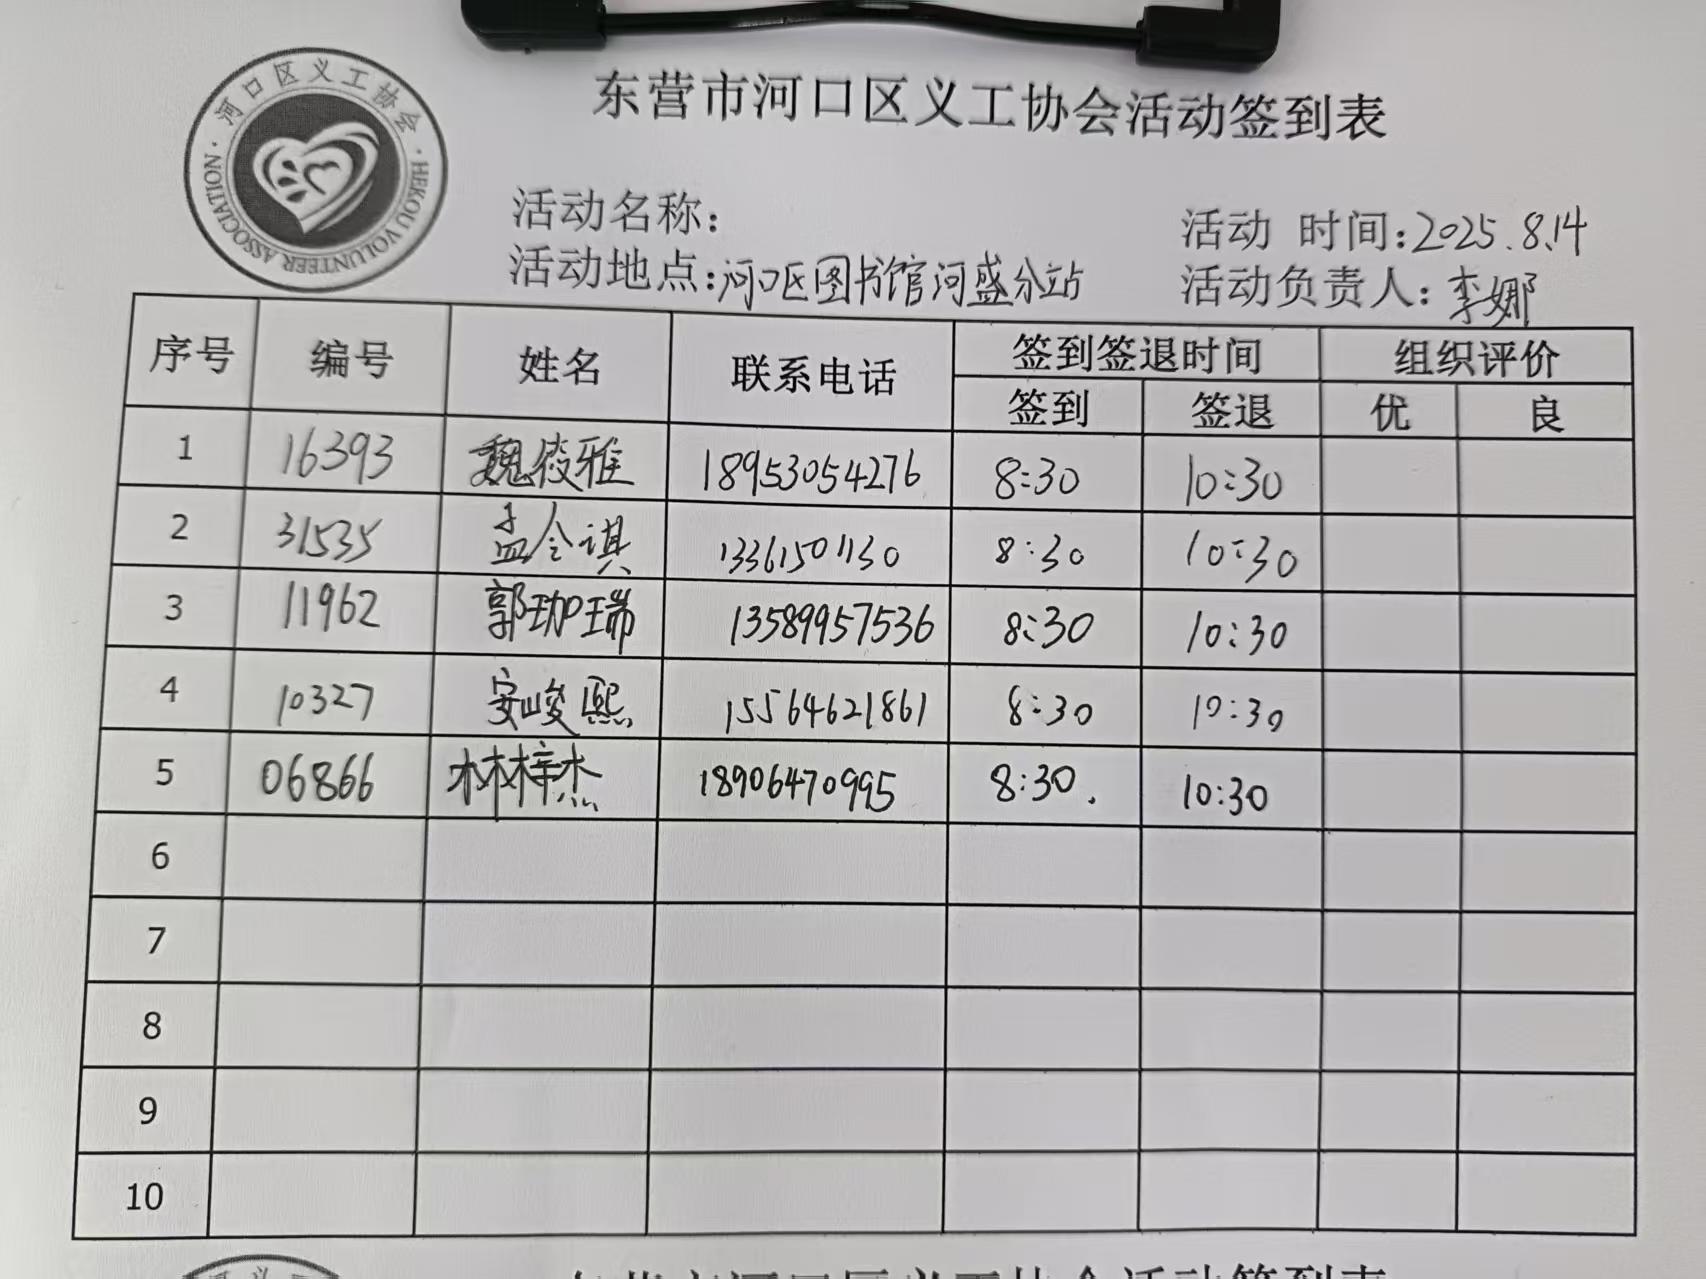 河口区义工协会
HEKOU VOLUNTEER ASSOCIATION
东营市河口区义工协会活动签到表
活动名称：
活动时间：2025.8.14
活动地点：河口区图书馆河盛分站
活动负责人：李娜
序号 编号 姓名 联系电话 签到签退时间 组织评价
签到 签退 优 良
1 16393 魏筱雅 18953054276 8:30 10:30
2 31535 孟令祺 13361501130 8:30 10:30
3 11962 郭珈瑞 13589957536 8:30 10:30
4 10327 安峻熙 15564621861 8:30 10:30
5 06866 林梓杰 18906470995 8:30. 10:30
6
7
8
9
10
东营市河口区义工协会活动签到表